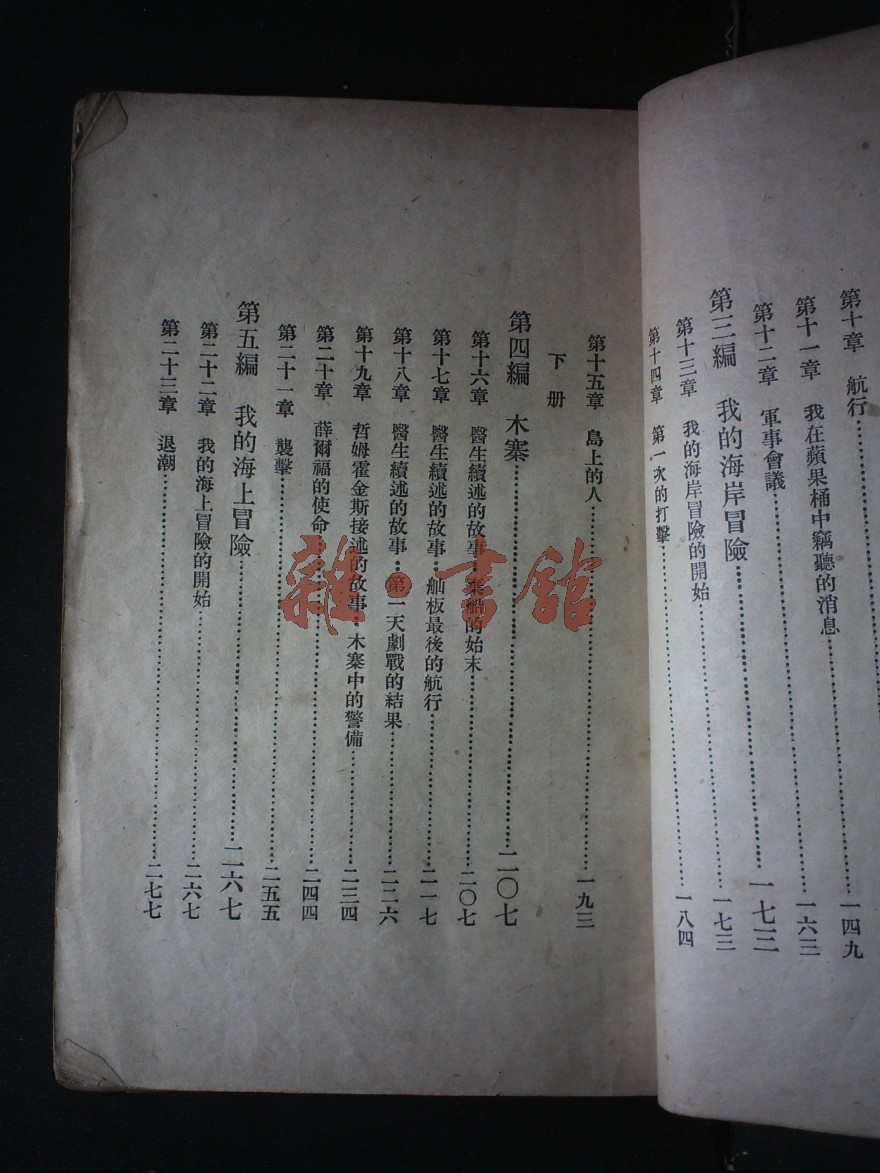 第十章 航行……
第十一章 我在蘋果桶中竊聽的消息……一四九
第十二章 軍事會議……一六三
第三編 我的海岸冒險……一七三
第十三章 我的海岸冒險的開始……一七三
第十四章 第一次的打擊……一八四
第十五章 島上的人……一九三
下册
第四編 木寨……二〇七
第十六章 醫生續述的故事：棄船的始末……二〇七
第十七章 醫生續述的故事：舢板最後的航行……二一七
第十八章 醫生續述的故事：第一天劇戰的結果……二二六
第十九章 哲姆霍金斯接述的故事：木寨中的警備……二三四
第二十章 薛爾福的使命……二四四
第二十一章 襲擊……二五五
第五編 我的海上冒險……二六七
第二十二章 我的海上冒險的開始……二六七
第二十三章 退潮……二七七
雜·書館